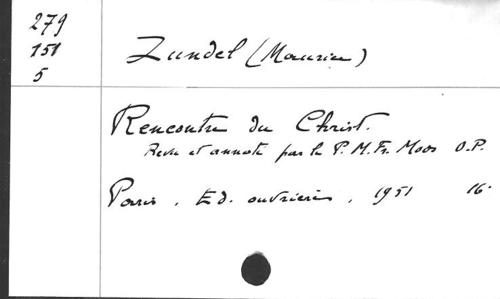 279
151
5
Zundel (Maurice)
Rencontre du Christ.
Revu et annoté par le P. M. Fr. Moos O.P.
Paris, Ed. ouvrières, 1951 16°